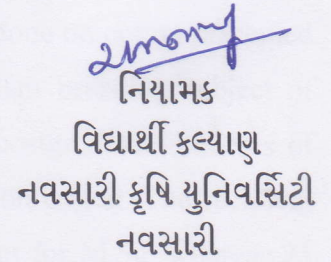 નિયામક
વિદ્યાર્થી કલ્યાણ
નવસારી કૃષિ યુનિવર્સિટી
નવસારી